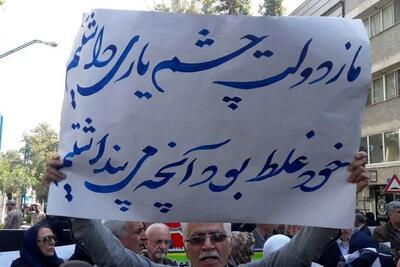 ما ز دولت چشم یاری داشتیم
خود غلط بود آنچه می پنداشتیم